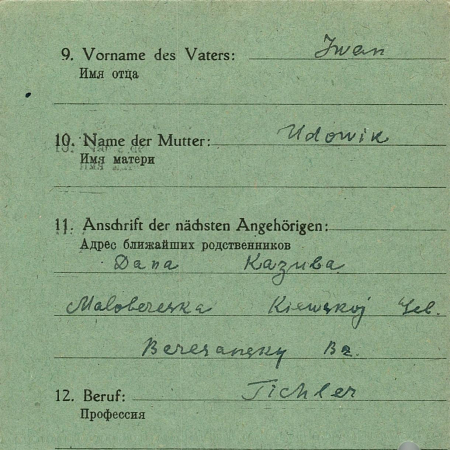 9. Vorname des Vaters: Iwan
Имя отца
10. Name der Mutter: Udowik
Имя матери
11. Anschrift der nächsten Angehörigen:
Адрес ближайших родственников
Dana Kazuba
Malobereska Kiewskoj Geb.
Beresansky Bz.
12. Beruf: Tichler
Профессия